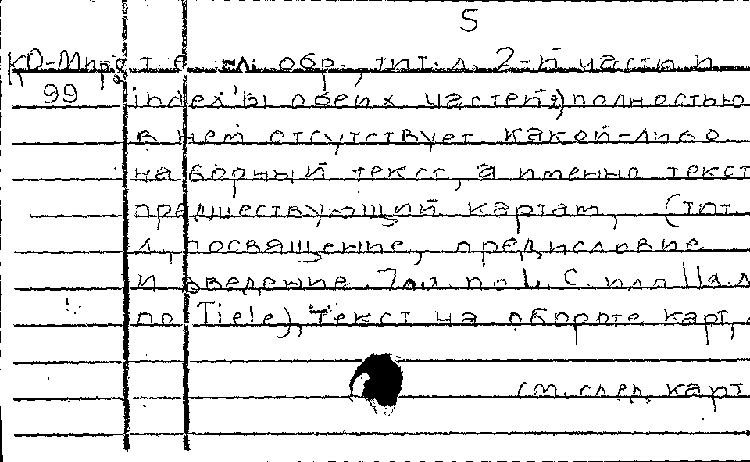 5
КО-Мир т. е. обр., тит. л. 2-й части и
99 index'ы обеих частей;) полностью
в нем отсутствует какой-либо
наборный текст, а именно текст
предшествующий картам, (тит.
л., посвящение, предисловие
и введение. 7 л. по L. C. или 11 л.
по Tiele), текст на обороте карт,
см. след. карт